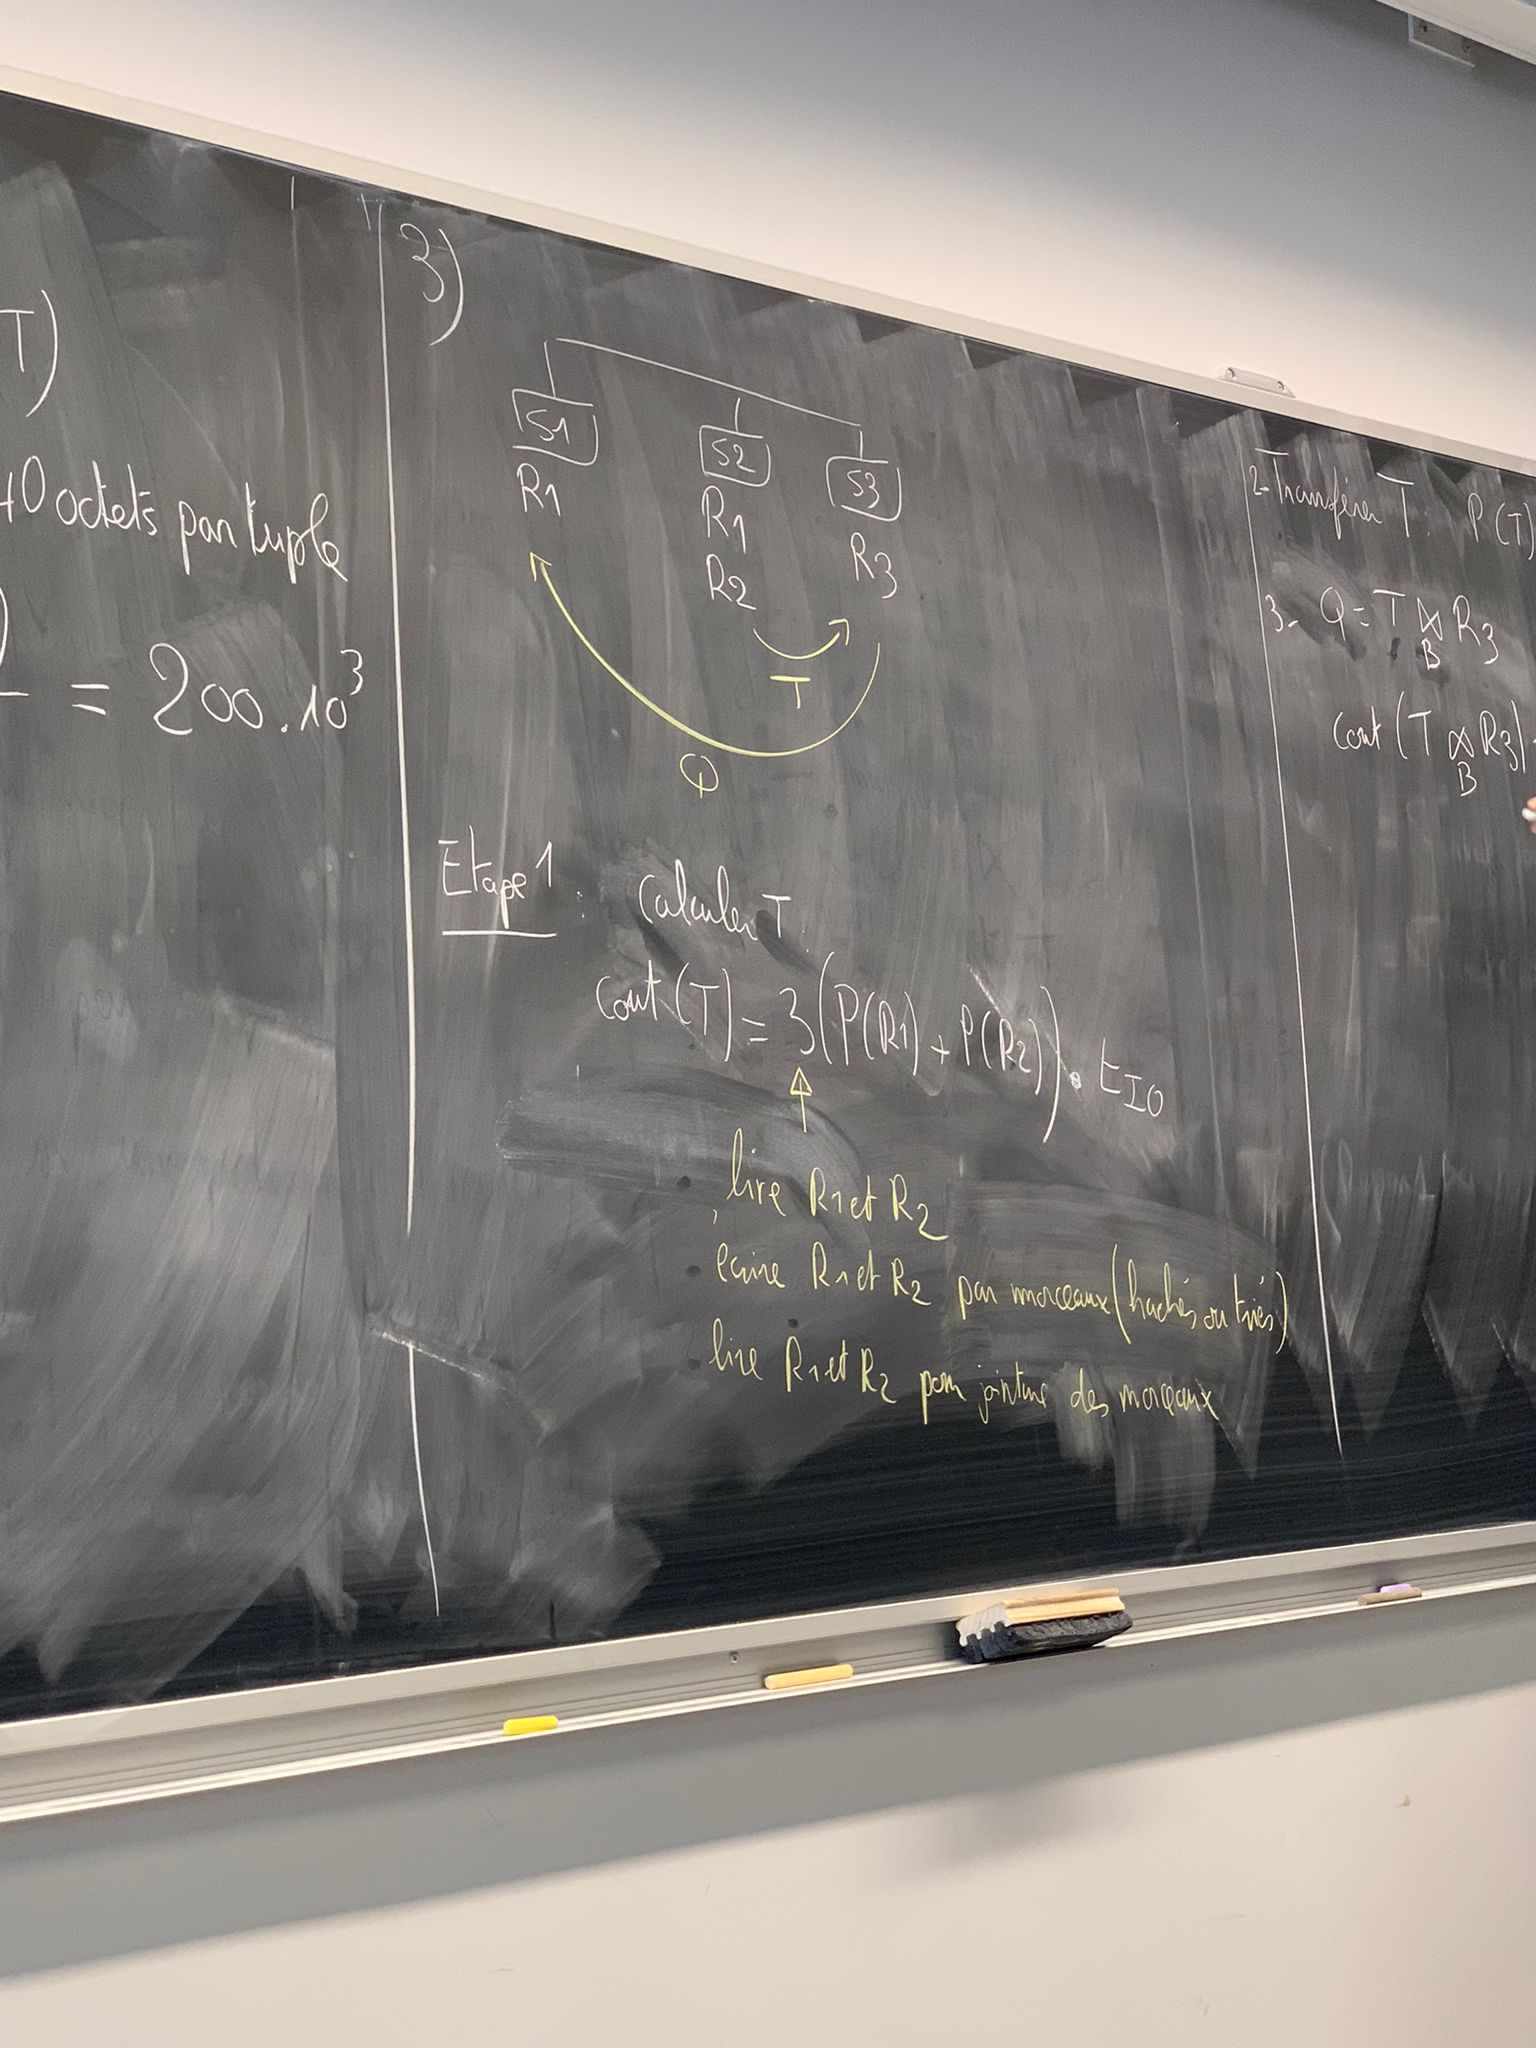 T)
40 octets par tuple
)
= 200.10³
3)
S1
S2
S3
R1
R1
R2
R3
T
Q
Etape 1 : Calculer T.
Cout (T) = 3 (P(R1) + P(R2)) . tIO
lire R1 et R2
ecrire R1 et R2 par morceaux (hachés ou triés)
lire R1 et R2 pour jointure des morceaux
2- Transférer T : P(T)
3- Q = T ⋈ R3
B
Cout (T ⋈ R3)
B